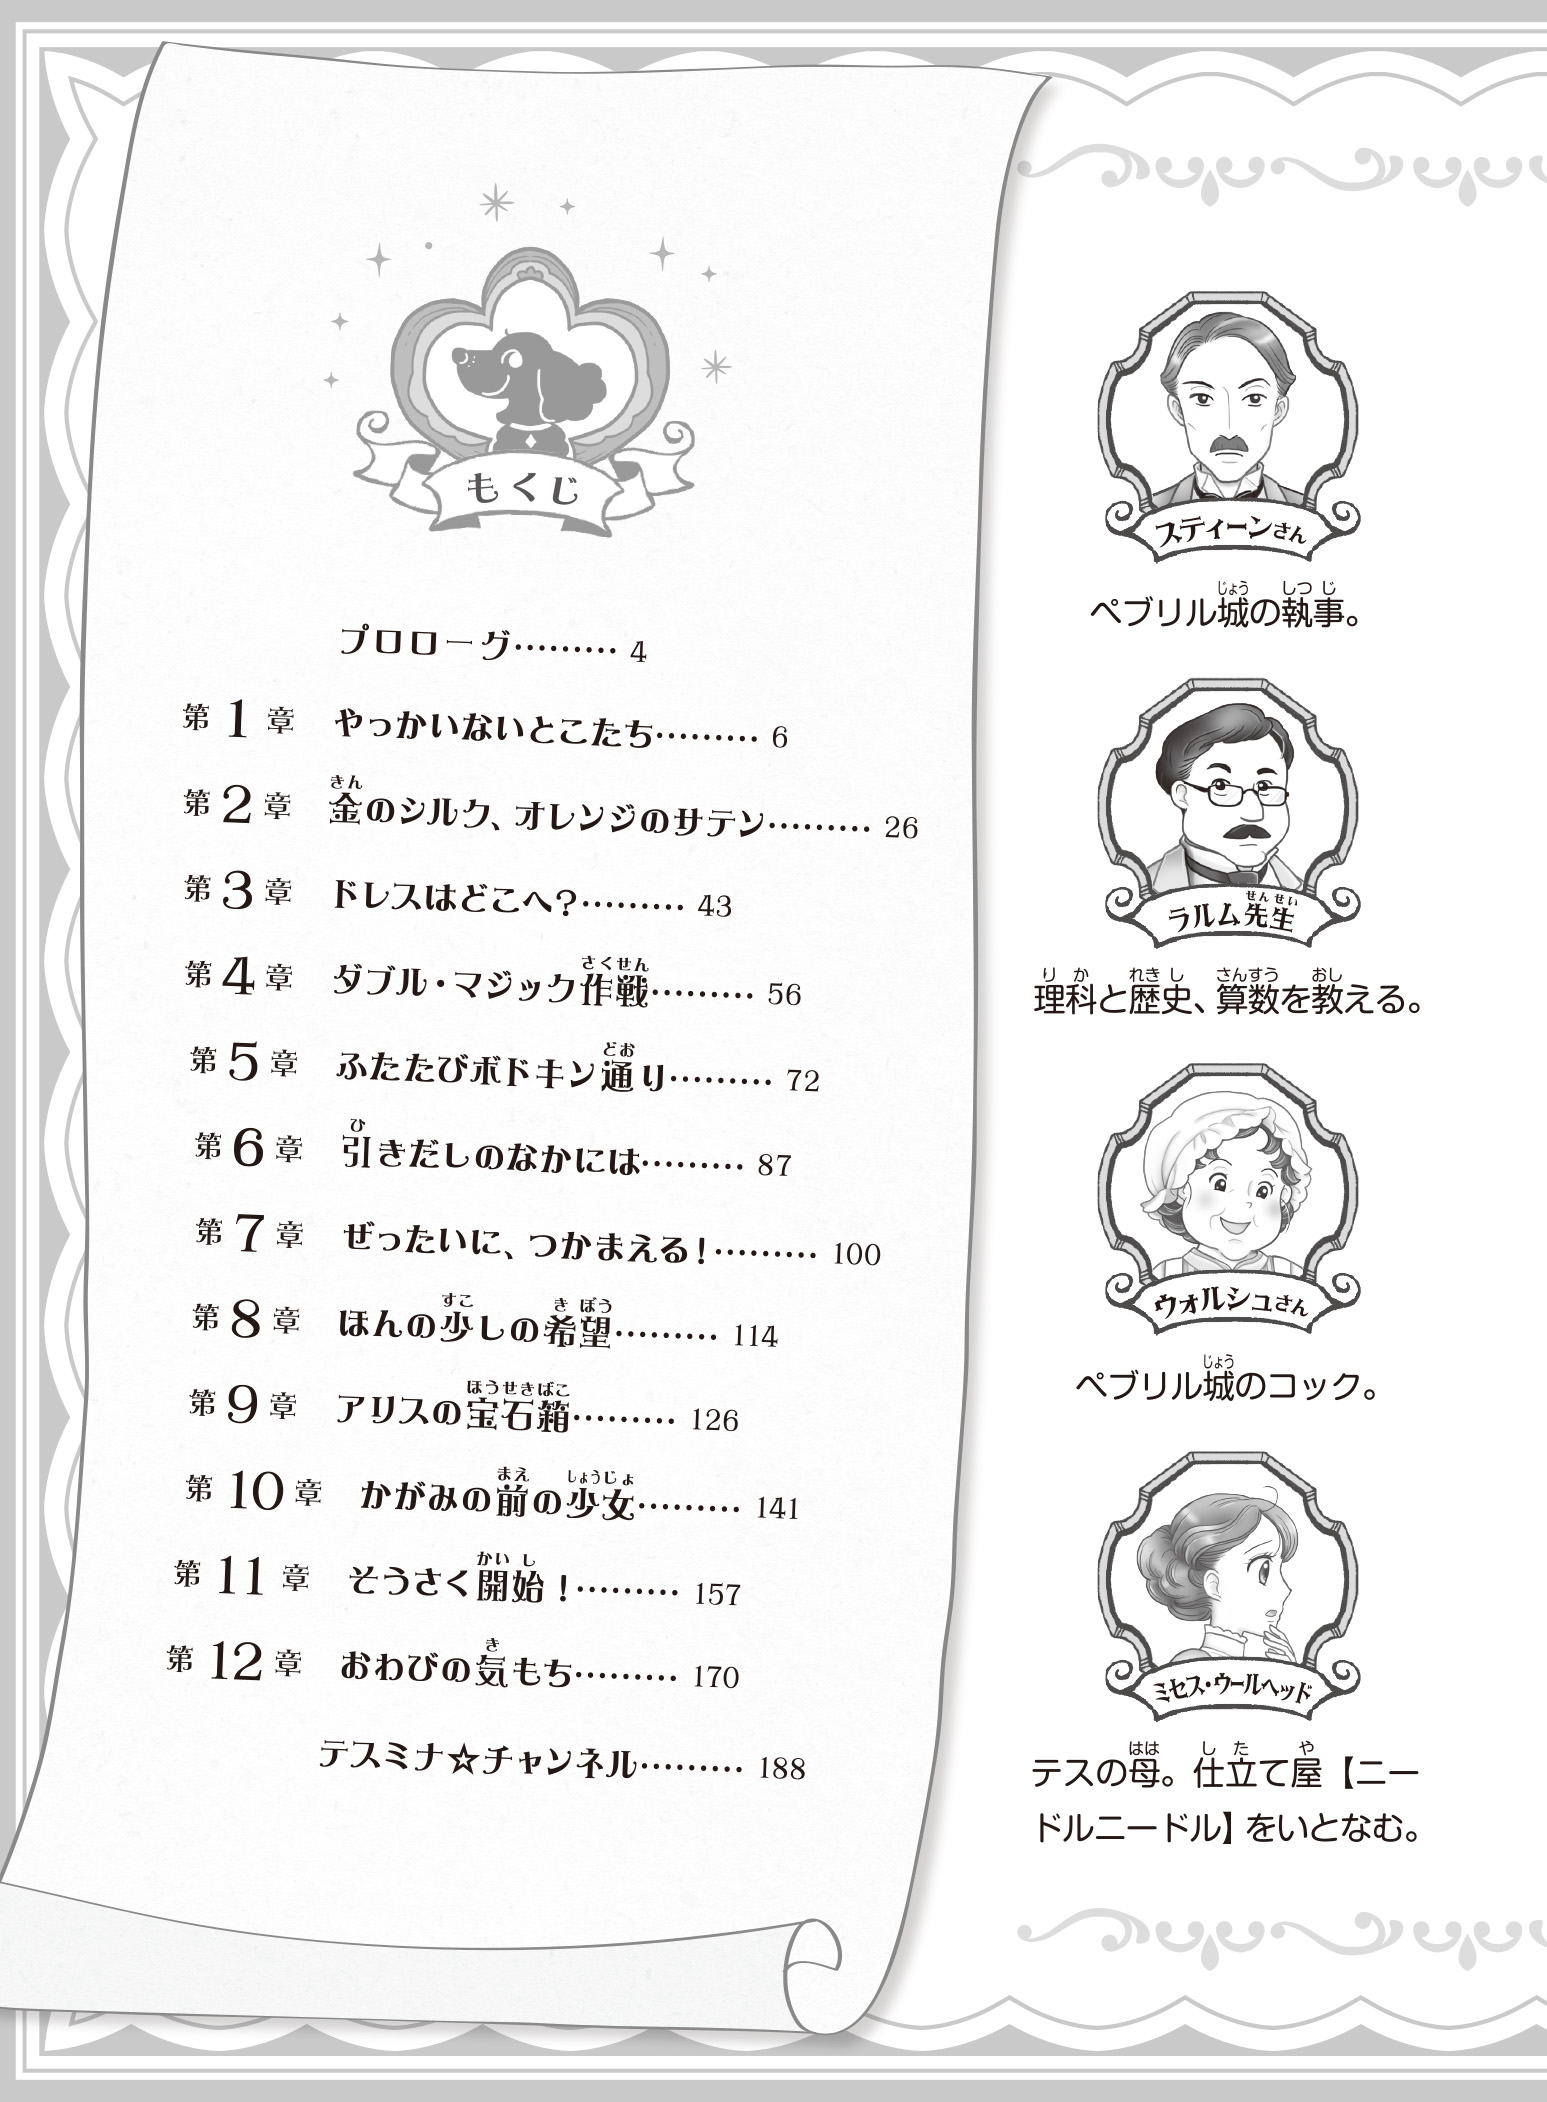 もくじ
プロローグ……… 4
第1章 やっかいないとこたち……… 6
第2章 金のシルク、オレンジのサテン……… 26
第3章 ドレスはどこへ？……… 43
第4章 ダブル・マジック作戦……… 56
第5章 ふたたびボドキン通り……… 72
第6章 引きだしのなかには……… 87
第7章 ぜったいに、つかまえる！……… 100
第8章 ほんの少しの希望……… 114
第9章 アリスの宝石箱……… 126
第10章 かがみの前の少女……… 141
第11章 そうさく開始！……… 157
第12章 おわびの気もち……… 170
テスミナ☆チャンネル……… 188
スティーンさん
ペブリル城の執事。
ラルム先生
理科と歴史、算数を教える。
ウォルシュさん
ペブリル城のコック。
ミセス・ウールヘッド
テスの母。仕立て屋【ニー
ドルニードル】をいとなむ。